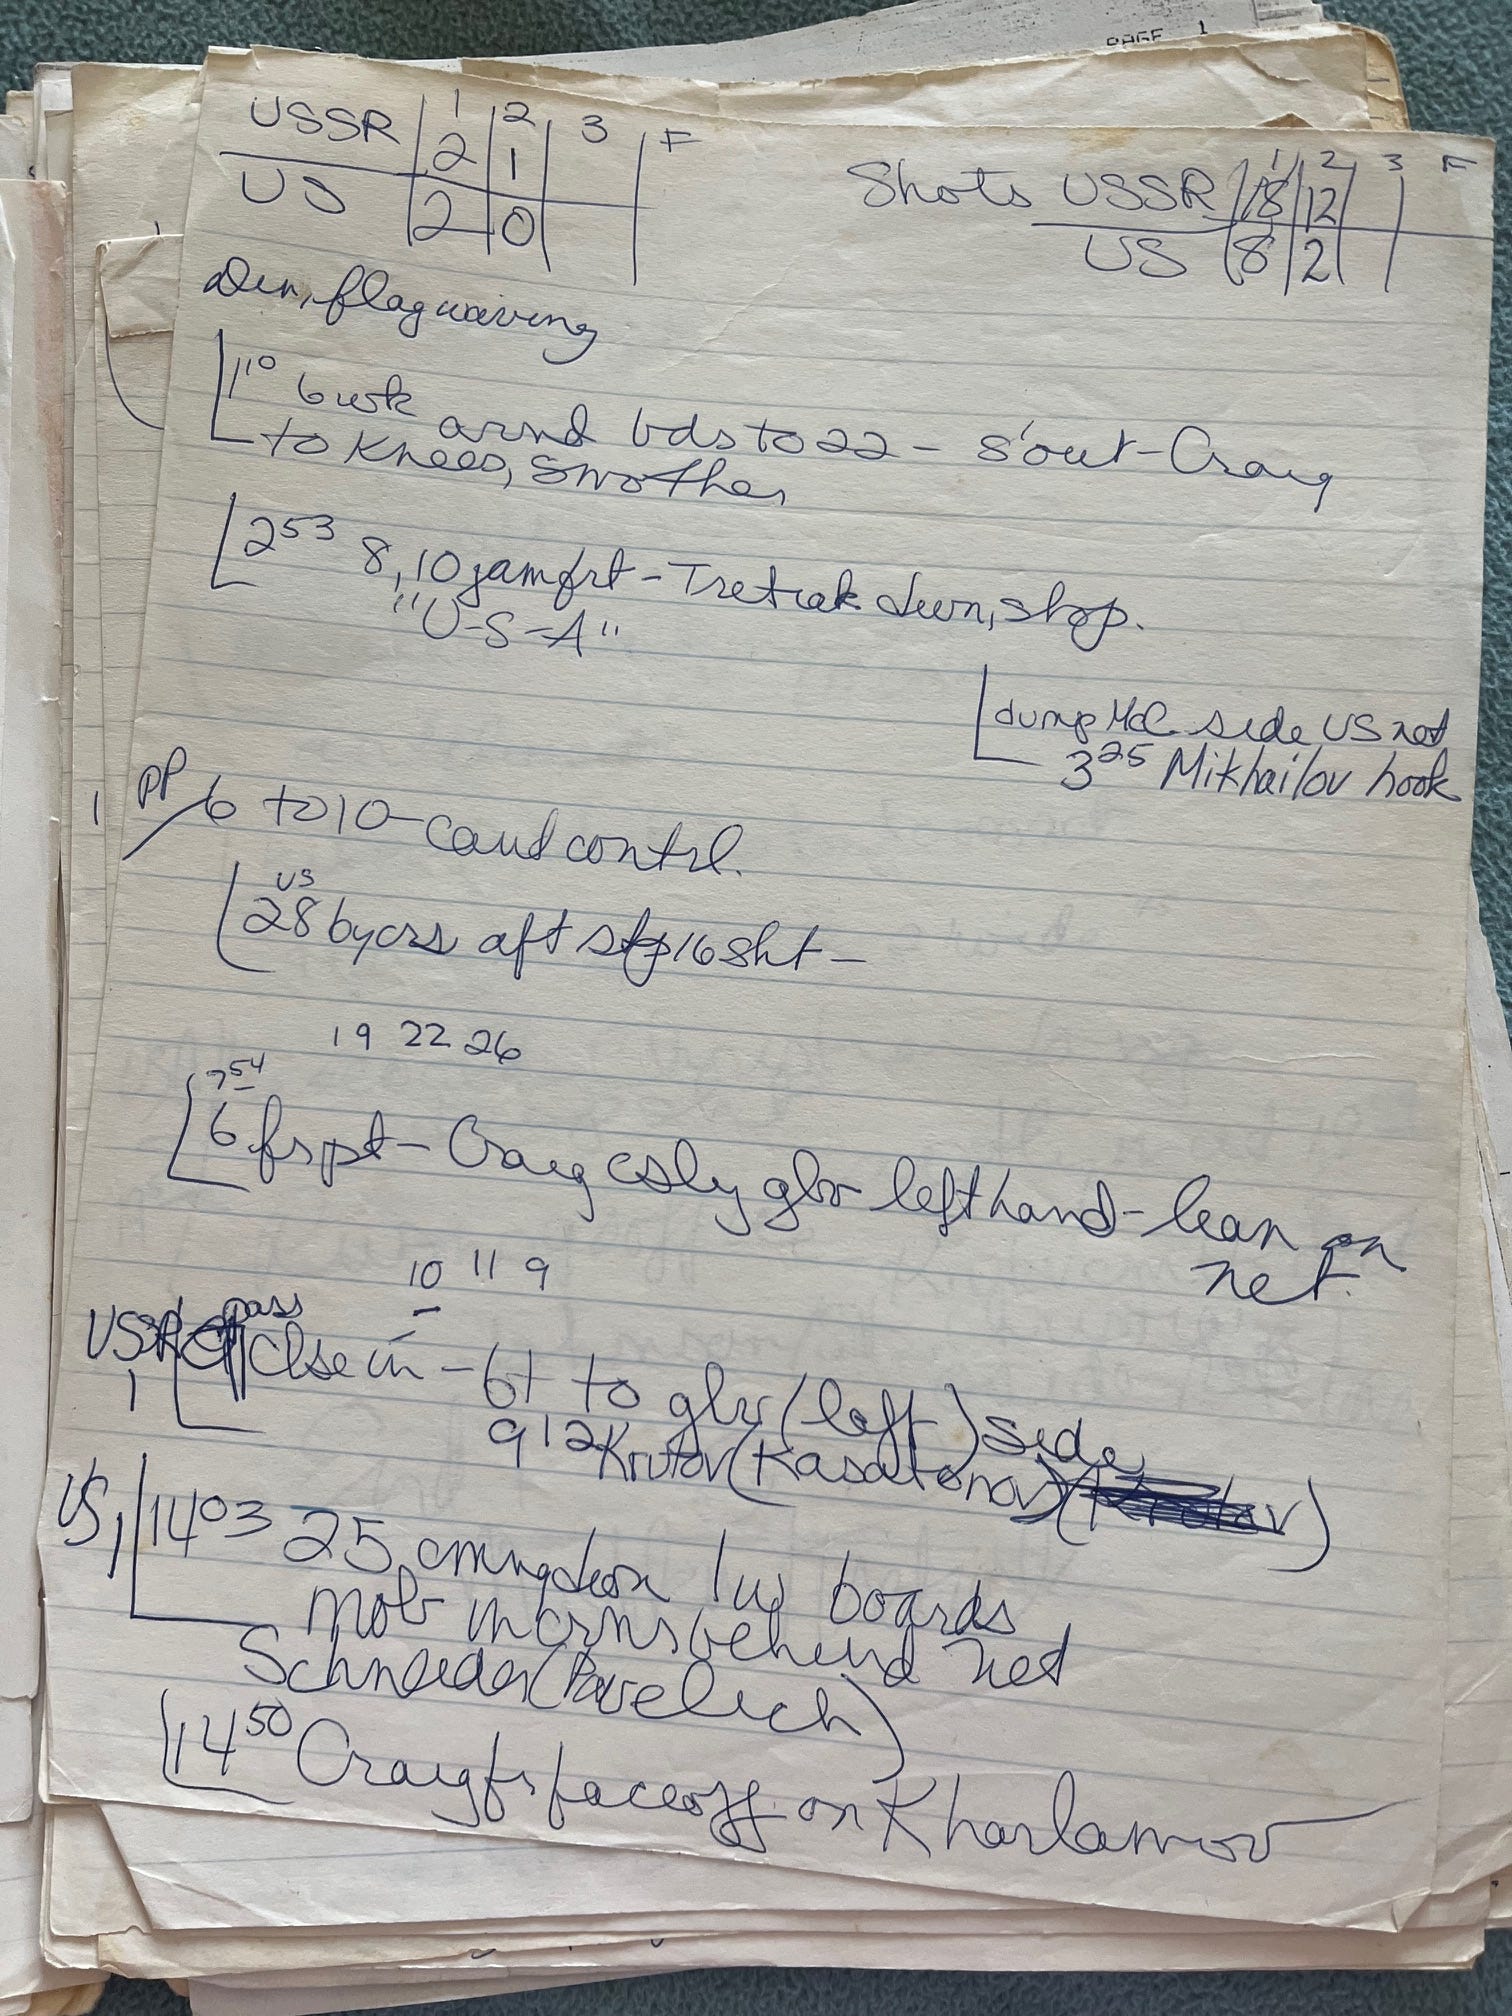 PAGE 1
1 2 3 F
USSR 2 1
US 2 0
Shots 1 2 3 F
USSR 18 12
US 8 2
Den, flagwaving
1¹⁰ 6 wk arnd bds to 22 - s'out - Craig
to knees, smother
2⁵³ 8, 10 jam frt - Tretiak down, stop.
"U-S-A"
dump McC side US net
3²⁵ Mikhailov hook
1 PP/6 to 10 - contrl.
US
28 by crs aft stp 16 sht -
19 22 26
7⁵⁴
6 frpt - Craig csly glv left hand - lean on
net.
10 11 9
USSR pass
1 clse in - 6t to glv (left) side
9 12 Krutov (Kasatonov)
US 1 14 03 25 cmng down lw boards
mob in crns behind net
Schneider (Pavelich)
14⁵⁰ Craig fr faceoff on Kharlamov